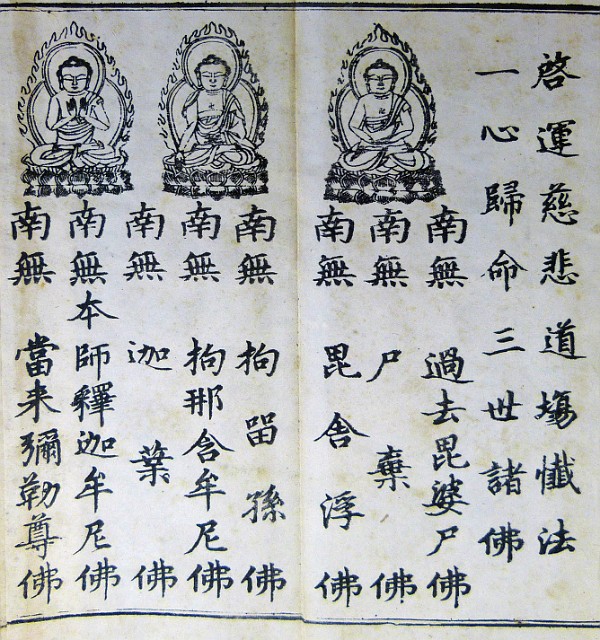 啓運慈悲道場懺法
一心歸命三世諸佛
南無過去毘婆尸佛
南無尸棄佛
南無毘舎浮佛
南無拘留孫佛
南無拘那含牟尼佛
南無迦葉佛
南無本師釋迦牟尼佛
南無當来彌勒尊佛